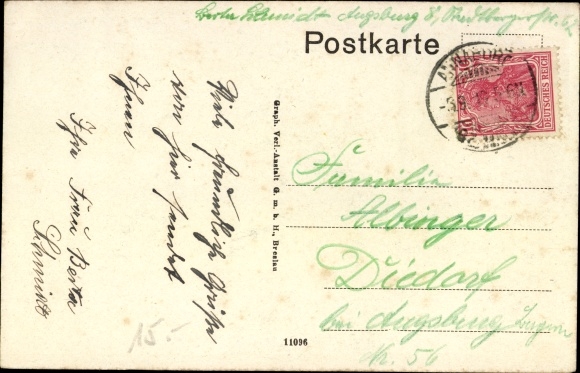 Berta Schmidt Augsburg 8,
Postkarte
DEUTSCHES REICH
Viele freundliche Grüße
von hier sendet
Ihnen
Ihre Frau Berta
Schmidt
Graph. Verl.-Anstalt G. m. b. H., Breslau
Familie
Albinger
Diedorf
bei Augsburg Bayern
Nr. 56
15.-
11096